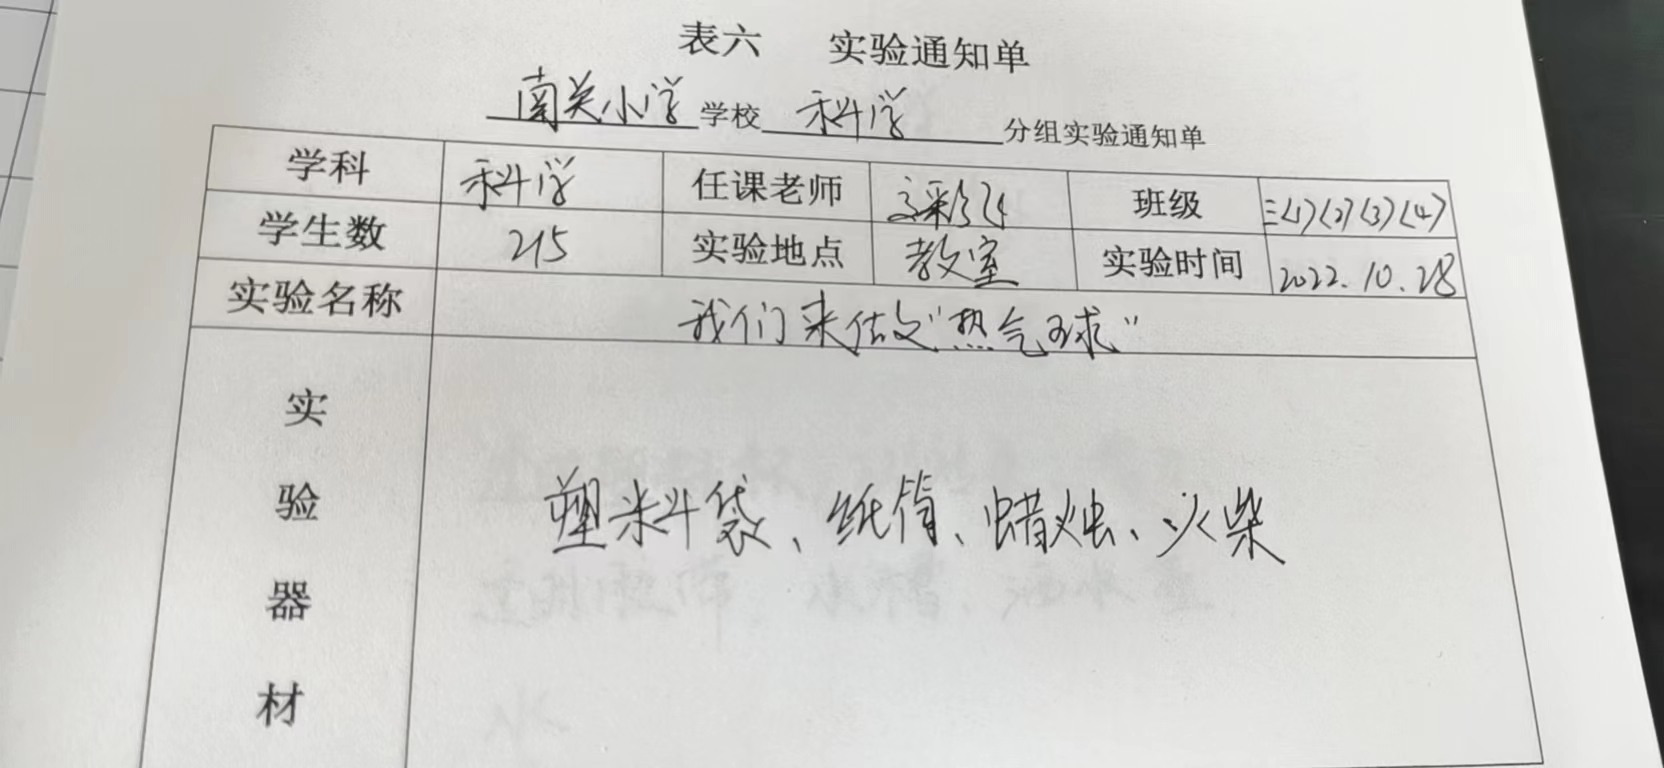 表六 实验通知单
南关小学学校科学分组实验通知单
学科 科学 任课老师 班级 三(1)(2)(3)(4)
学生数 215 实验地点 教室 实验时间 2022.10.28
实验名称 我们来做"热气球"
实验器材 塑料袋、纸筒、蜡烛、火柴